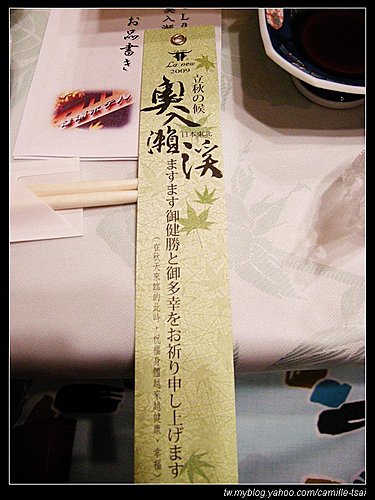 La new
2009
立秋の候
奥入瀬渓
日本東北
ますます御健勝と御多幸をお祈り申し上げます
(在秋天來臨的此時，祝福身體越來越健康、幸福)
お品書き
tw.myblog.yahoo.com/camille-tsai